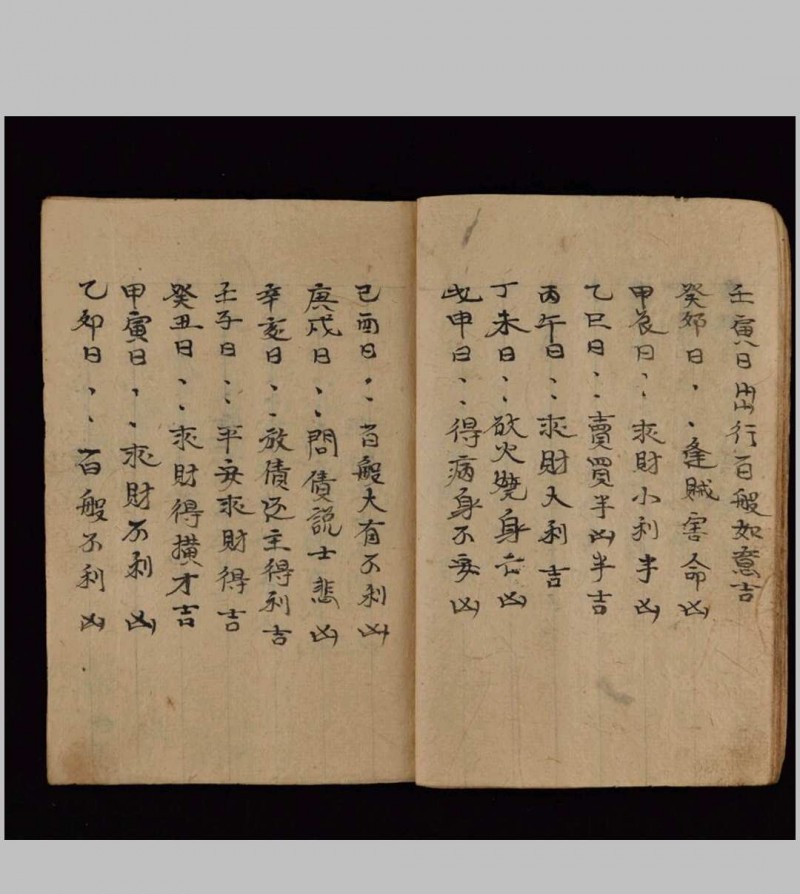 壬寅日出行百般如意吉
癸卯日、、逢贼害命凶
甲辰日、、求財小利半凶
乙巳日、、賣買半凶半吉
丙午日、、求財大利吉
丁未日、、欲火燒身亡凶
戊申日、、得病身不安凶
己酉日、、百般大有不利凶
庚戌日、、問債說士悲凶
辛亥日、、放債还主得利吉
壬子日、、平安求財得吉
癸丑日、、求財得横才吉
甲寅日、、求財不利凶
乙卯日、、百般不利凶